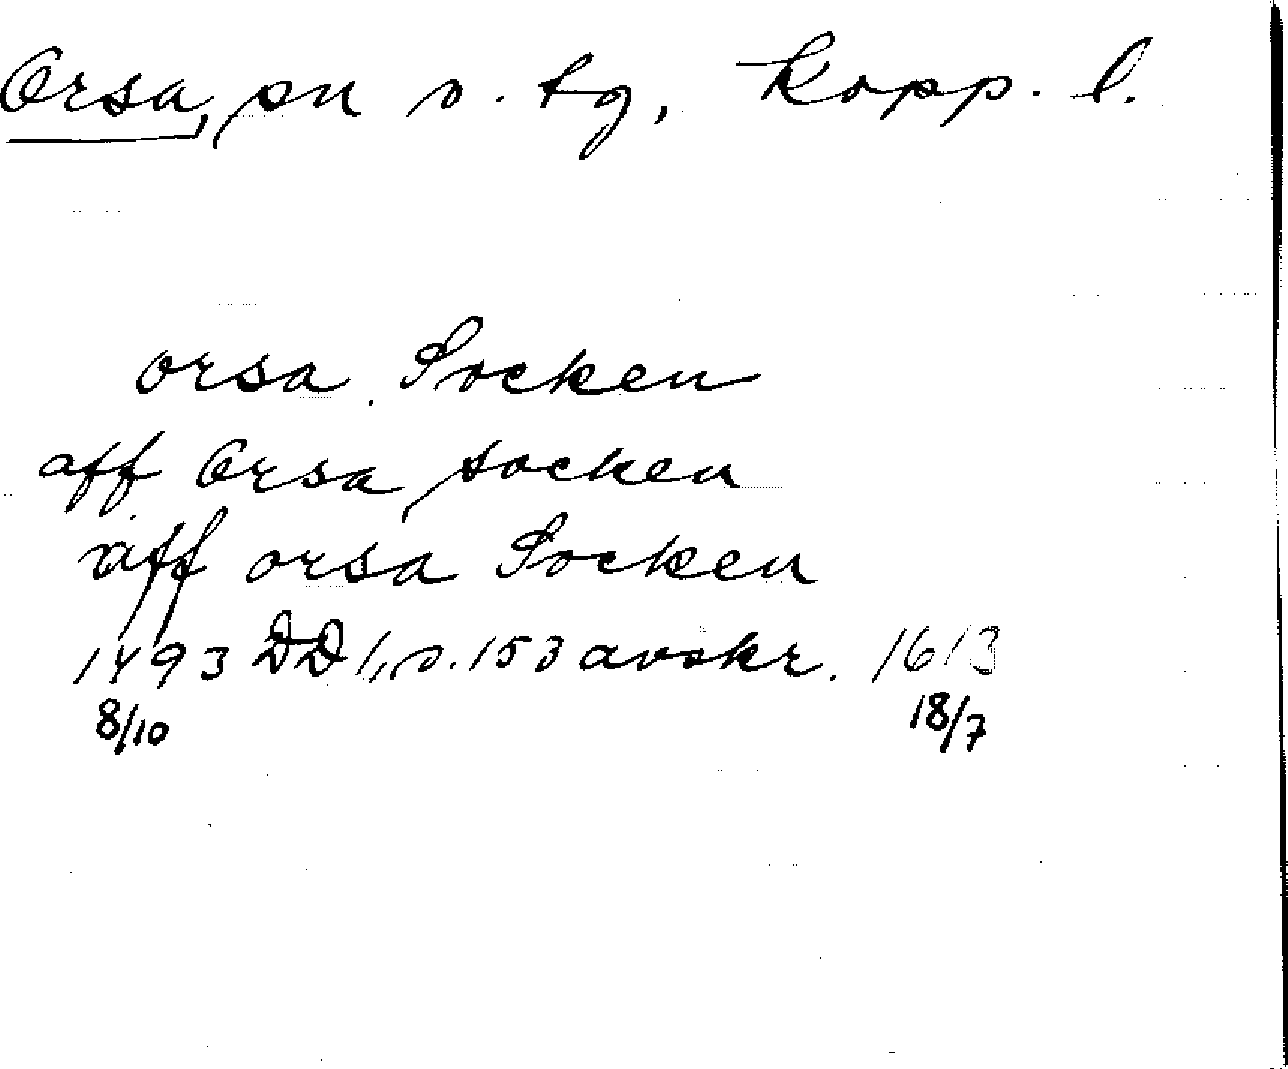 Orsa, sn o. tg, Kopp. l.
orsa Socken
aff Orsa socken
äff orsa Socken
1493 DD 1, s. 153 avskr. 1613
8/10 18/7